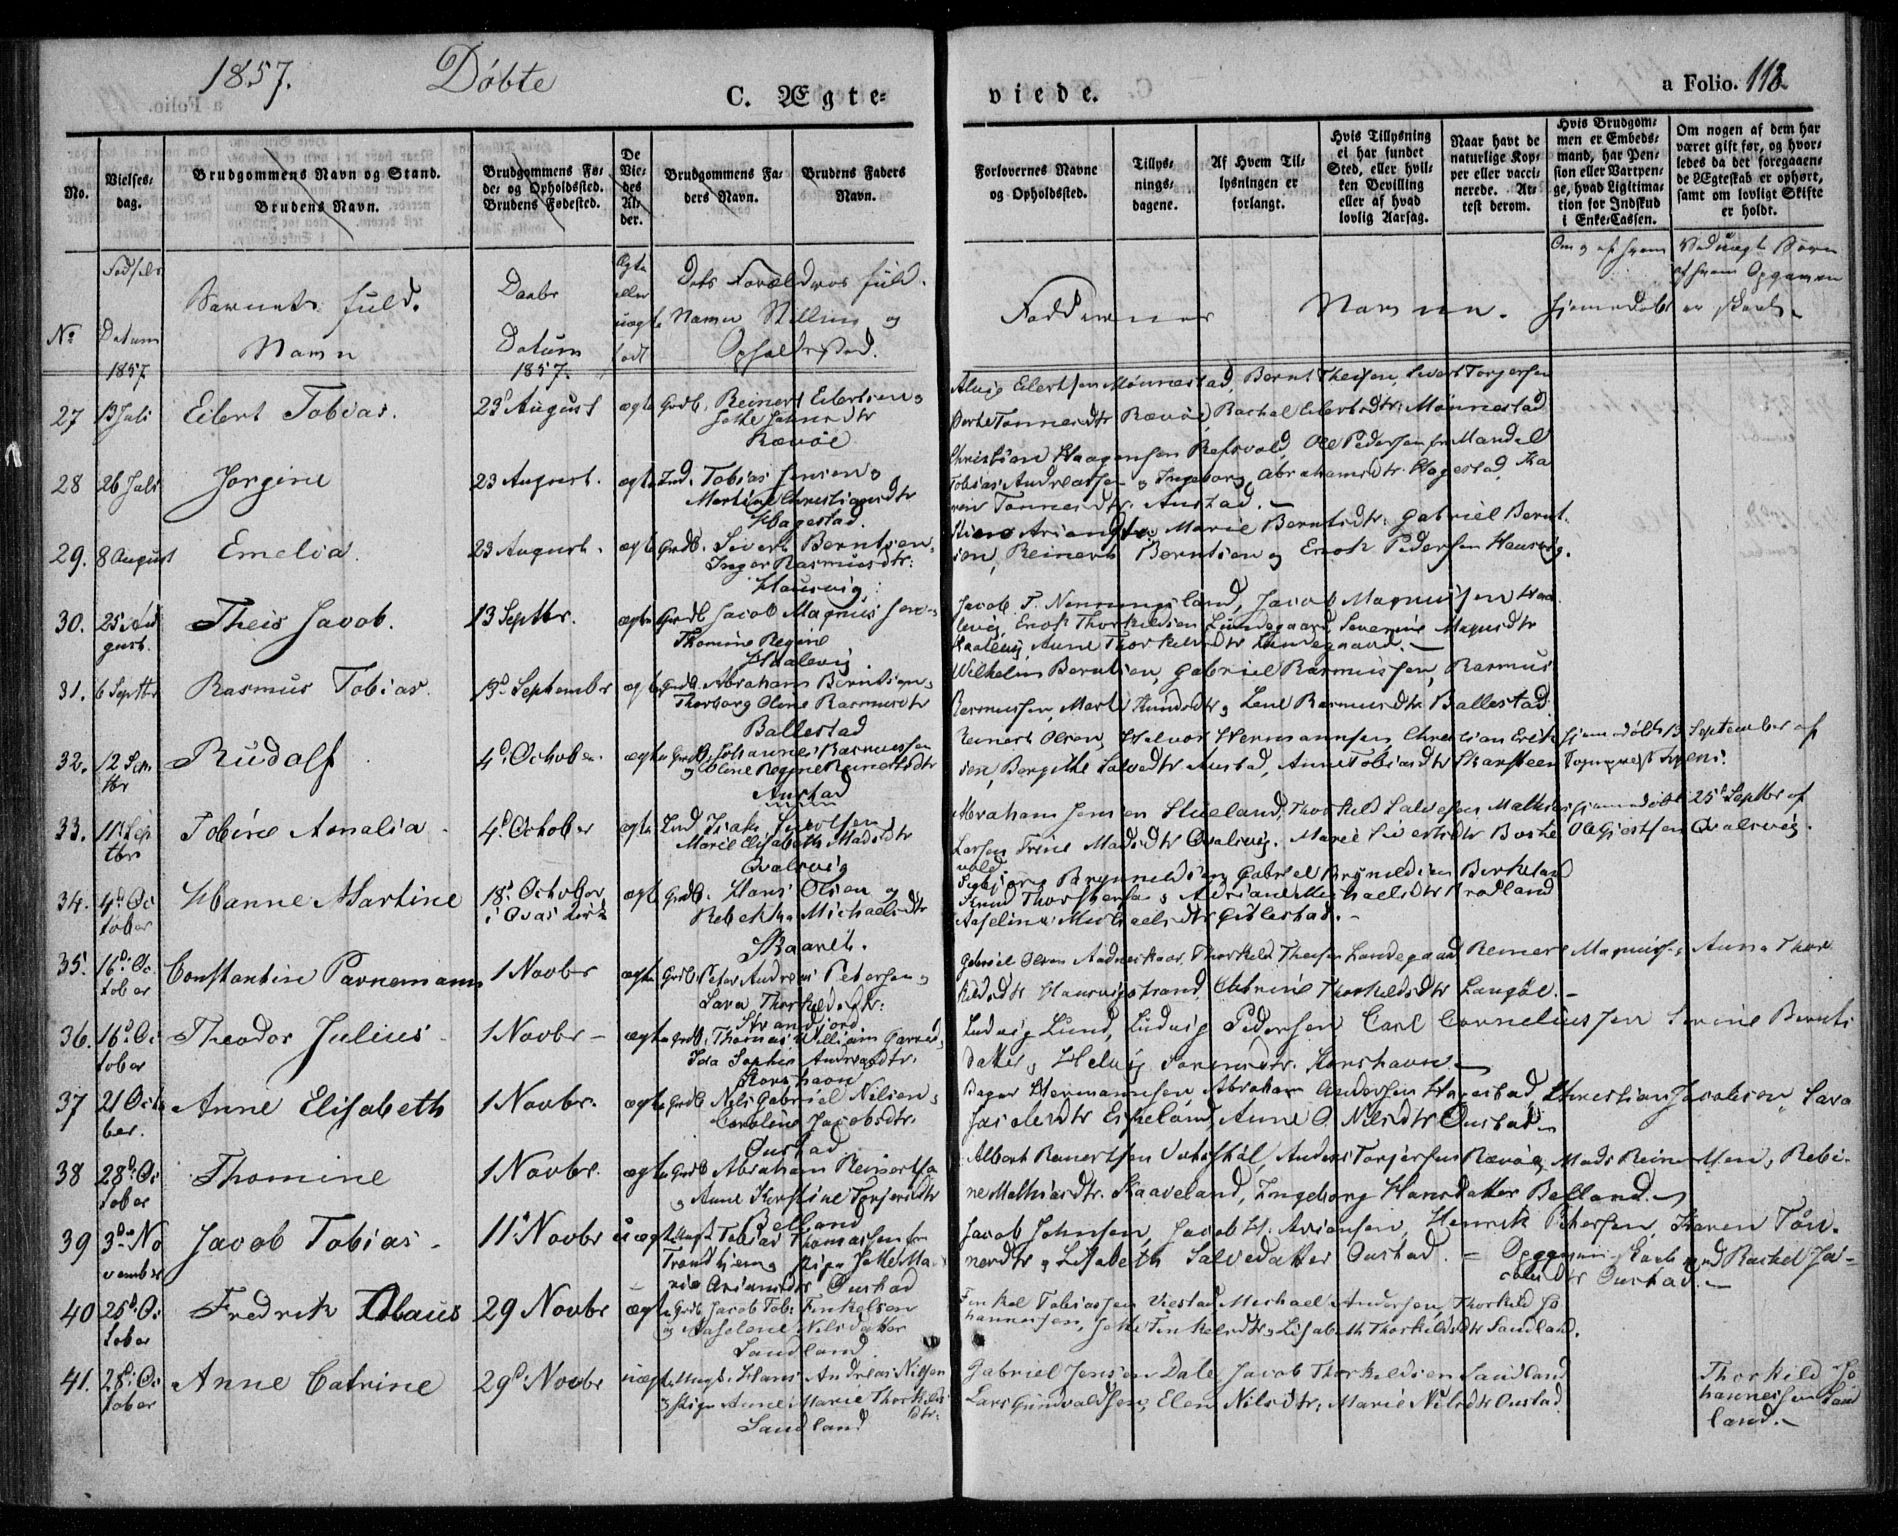 1857. Døbte
C. Ægte-
viede.
a Folio. 118
No.
Vielses-
dag.
Brudgommens Navn og Stand.
Brudens Navn.
Brudgommens Fø-
de- og Opholdssted.
Brudens Fødested.
De
Vie-
des
Al-
der.
Brudgommens Fa-
ders Navn.
Brudens Faders
Navn.
Forlovernes Navne
og Opholdssted.
Tillys-
nings-
dagene.
Af Hvem Til-
lysningen er
forlangt.
Hvis Tillysning
ei har fundet
Sted, eller hvil-
ken Bevilling
eller af hvad
lovlig Aarsag.
Naar havt de
naturlige Kop-
per eller vacci-
nerede. At-
test derom.
Hvis Brudgom-
men er Embeds-
mand, har Pen-
sion eller Vartpen-
ge, hvad Ligitima-
tion for Indskud
i Enke-Cassen.
Om nogen af dem har
været gift før, og hvor-
ledes da det foregaaen-
de Ægteskab er ophørt,
samt om lovligt Skifte
er holdt.
No
Fødsels
Datum
1857
Barnets fuld.
Navn
Daabs
Datum
1857.
Ægte
eller
uægte
født
Dets Forældres fuld.
Navn Stilling og
Opholdssted.
Faddernes Navnne.
Om og af hvem
hjemedøbt
Ved uægte Børn
af hvem Opgaven
er skeet.
27 13 Juli Eilert Tobias. 23d August ægte Grdb. Reinert Eilertsen og
Jothe Johnsdtr
Rævøe
Eilertsen Mønnestad, Bernt Theisen, Sivert Torjersen
Tønnesdtr Rævøe, Rachel Eilertsdtr: Mønnestad
28 26 Juli Jorgine 23 August. ægte Ind. Tobias Jensen og
Martine Christiansdtr
Hagestad.
Christian Haagensen Refsvold, Ole Pedersen fra Mandal
Tobias Andreassen og Ingeborg Abrahamsdtr Hagestad, Ka
ren Tønnesdtr: Austad.
29. 8 August Emelia. 23 August. ægte Grdb. Sivert Berntsen,
Inger Rasmusdtr:
Hausvig
Marie Berntsdtr: Gabriel Bernt
sen, Reinert Berntsen og Enok Pedersen Hausvig.
30. 25 Au
gust. Theis Jacob. 13 Septbr. ægte Grdb Jacob Magnus
Thomine Regine
Haalevig.
Jacob T. Nonningsland, Jacob Magnussen Haa
levig, Enok Thorkildsen Lundegaard, Severine Magnsdtr
Haalevig Anne Thorkildsdtr Lundegaard.
31. 6 Septbr Rasmus Tobias. 13d September ægte Grdb Abraham Berntsen,
Thorborg Oline Rasmusdtr
Ballestad
Wilhelm Berntsen, Gabriel Rasmussen, Rasmus
Rasmussen, Marte og Lene Rasmusdtr Ballestad.
32. 12 Sep
tbr Rudolf 4d October ægte Grdb. Johannes Rasmussen
og Oline Regine Reinertsdtr
Austad
Reinert Olsen, Halvor Hermannsen, Christian Erik
sen, Bergithe Salvedtr Austad, Anne Tobiasdtr Skarsteen
hjemmedøbt 13 September af
33. 11d Sep
tbr Tobine Amalia 4d October ægte Ind Isak
Marie Elisabeth Madsdtr
Qvalevig
Abraham Jensen Stueland, Thorkild Salvesen
Larsen Trine Madsdtr Qvalevig. Marie Sivertsdtr
vold
hjemmedøbt 25d Septbr af
Ole Giertsen Qvalevig.
34. 4d Oc
tober Hanne Martine 18d October
i Qvas Kirk ægte Grdb. Hans Olsen og
Rebekka Michaelsdtr
Skaanet.
Brynnildsen Gabriel Brynnildsen Birkeland
Adriane Michaelsdtr
Aaseline Michaelsdtr Gitlestad.
35. 16d Oc
tober Constantin Parnemann 1 Novbr ægte Grdb Peter Andreas Petersen og
Sara Thorkildsdtr:
Strandfjord
Gabriel Olsen Aadneskaar, Thorkild Theisen Lundegaard Reinert Magnus Anne Thor
kildsdtr Hausvigstrand, Cathrine Thorkildsdtr Langøe.
36. 16d Oc
tober Theodor Julius 1 Novbr ægte Grdb. Thomas William
Sophie Andreasdtr.
Korshavn
Ludvig Lund, Ludvig Pedersen Carl Corneliussen Serine Bernts
datter, Helvig Sørensdtr. Korshavn
37 21 Octo
ber. Anne Elisabeth 1 Novbr. ægte Grdb Nils Gabriel Nilsen,
Caroline Jacobsdtr.
Oustad
Hermannsen, Abraham Andersen Hagestad, Christian Jacobsen, Sara
Eskeland, Anne O. Nilsdtr Oustad
38 28d Oc
tober Thomine 1 Novbr. ægte Grdb Abraham Reinertsen
og Anne Kirstine Torjersdtr
Belland
Albert Reinertsen Anders Torjersen Rævøe, Mads Reinertsen, Rebi-
ne Mathiasdtr. Skaaveland, Ingeborg Hansdatter Belland.
39 3d No
vember Jacob Tobias 11d Novbr uægte Ungk Tobias Thomassen fra
Trondhjem og Pige Jothe Ma
rie Ariansdtr Oustad
Jacob Johnsen, Jacob H. Ariansen, Henrik Petersen, Karen Tøn-
nesdtr og Lisabeth Salvedatter Oustad. — Opgaven skeet ved Rachel Ja-
cobsdtr Oustad.
40 25d Oc
tober Fredrik Olaus 29 Novbr ægte Grdb Jacob Tob: Finkelsen
og Aaselene Nilsdatter
Sandland
Finkel Tobiassen Viestad Michael Andersen, Thorkild Jo
hannessen, Jothe Finkelsdtr, Lisabeth Thorkildsdtr Sandland.
41. 28d Oc
tober Anne Catrine 29d Novbr uægte Ungk. Hans Andreas Nilsen
og Pige Anne Marie Thorkilds
dtr.
Sandland
Gabriel Jensen Dale Jacob Thorkildsen Sandland
Lars Gundvaldsen, Elen Nilsdtr, Marie Nilsdtr Oustad.
Thorkild Jo
hannessen Sand
land.